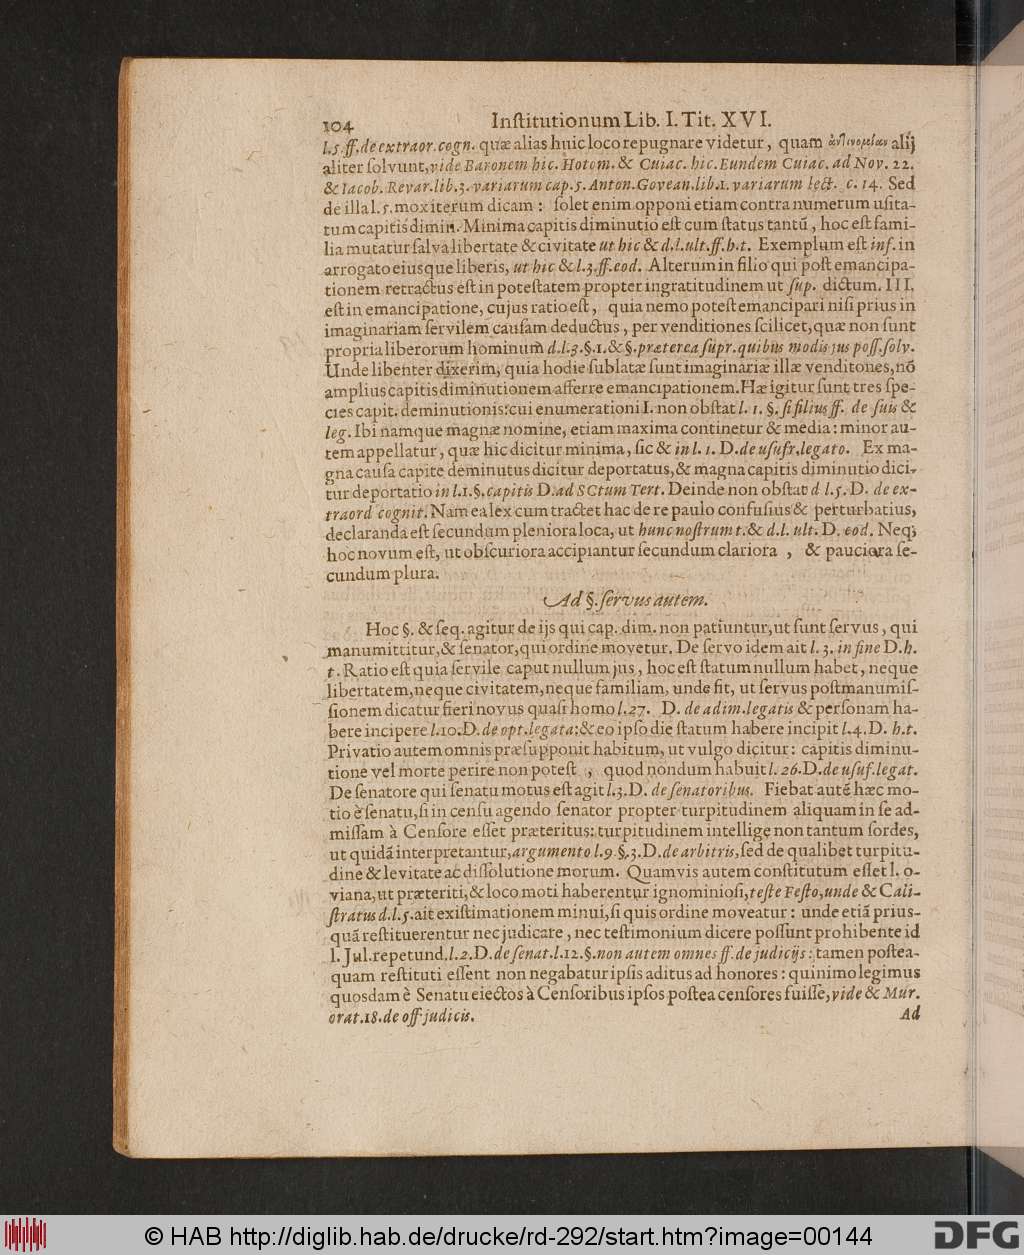 104 Inſtitutionum Lib. I. Tit. XVI.
l.5 ff. de extraor. cogn. quæ alias huic loco repugnare videtur, quam ἀντινομείαν alij
aliter ſolvunt, vide Baronem hic. Hotom. & Cuiac. hic. Eundem Cuiac. ad Nov. 22.
& Iacob. Revar. lib. 3. variarum cap. 5. Anton. Govean. lib. 1. variarum lect. c. 14. Sed
de illa l. 5. mox iterum dicam: ſolet enim opponi etiam contra numerum uſita-
tum capitis dimin. Minima capitis diminutio eſt cum ſtatus tantũ, hoc eſt fami-
lia mutatur ſalva libertate & civitate ut hic & d. l. ult. ff. h. t. Exemplum eſt inf. in
arrogato eiusque liberis, ut hic & l. 3. ff. eod. Alterum in filio qui poſt emancipa-
tionem retractus eſt in poteſtatem propter ingratitudinem ut ſup. dictum. III.
eſt in emancipatione, cujus ratio eſt, quia nemo poteſt emancipari niſi prius in
imaginariam ſervilem cauſam deductus, per venditiones ſcilicet, quæ non ſunt
propria liberorum hominum d. l. 3. §. 1. & §. præterea ſupr. quibus modis jus poſſ. ſolv.
Unde libenter dixerim, quia hodie ſublatæ ſunt imaginariæ illæ venditones, nõ
amplius capitis diminutionem afferre emancipationem. Hæ igitur ſunt tres ſpe-
cies capit. deminutionis: cui enumerationi I. non obſtat l. 1. §. ſi filius ff. de ſuis &
leg. Ibi namque magnæ nomine, etiam maxima continetur & media: minor au-
tem appellatur, quæ hic dicitur minima, ſic & in l. 1. D. de uſufr. legato. Ex ma-
gna cauſa capite deminutus dicitur deportatus, & magna capitis diminutio dici-
tur deportatio in l. 1. §. capitis D. ad SCtum Tert. Deinde non obſtat d l. 5. D. de ex-
traord cognit. Nam ea lex cum tractet hac de re paulo confuſius & perturbatius,
declaranda eſt ſecundum pleniora loca, ut hunc noſtrum t. & d. l. ult. D. eod. Neq;
hoc novum eſt, ut obſcuriora accipiantur ſecundum clariora, & pauciora ſe-
cundum plura.
Ad §. ſervus autem.
Hoc §. & ſeq. agitur de ijs qui cap. dim. non patiuntur, ut ſunt ſervus, qui
manumittitur, & ſenator, qui ordine movetur. De ſervo idem ait l. 3. in fine D. h.
t. Ratio eſt quia ſervile caput nullum jus, hoc eſt ſtatum nullum habet, neque
libertatem, neque civitatem, neque familiam, unde fit, ut ſervus poſt manumiſ-
ſionem dicatur fieri novus quaſi homo l. 27. D. de adim. legatis & perſonam ha-
bere incipere l. 10. D. de opt. legata: & eo ipſo die ſtatum habere incipit l. 4. D. h. t.
Privatio autem omnis præſupponit habitum, ut vulgo dicitur: capitis diminu-
tione vel morte perire non poteſt, quod nondum habuit l. 26. D. de uſuf. legat.
De ſenatore qui ſenatu motus eſt agit l. 3. D. de ſenatoribus. Fiebat autẽ hæc mo-
tio è ſenatu, ſi in cenſu agendo ſenator propter turpitudinem aliquam in ſe ad-
miſſam à Cenſore eſſet præteritus: turpitudinem intellige non tantum ſordes,
ut quidã interpretantur, argumento l. 9 §. 3. D. de arbitris, ſed de qualibet turpitu-
dine & levitate ac diſſolutione morum. Quamvis autem conſtitutum eſſet l. o-
viana, ut præteriti, & loco moti haberentur ignominioſi, teſte Feſto, unde & Cali-
ſtratus d. l. 5. ait exiſtimationem minui, ſi quis ordine moveatur: unde etiã prius-
quã reſtituerentur nec judicare, nec teſtimonium dicere poſſunt prohibente id
l. Jul. repetund. l. 2. D. de ſenat. l. 12. §. non autem omnes ff. de judicijs: tamen poſtea-
quam reſtituti eſſent non negabatur ipſis aditus ad honores: quinimo legimus
quosdam è Senatu eiectos à Cenſoribus ipſos poſtea cenſores fuiſſe, vide & Mur.
orat. 18. de off judicis. Ad
© HAB http://diglib.hab.de/drucke/rd-292/start.htm?image=00144 DFG